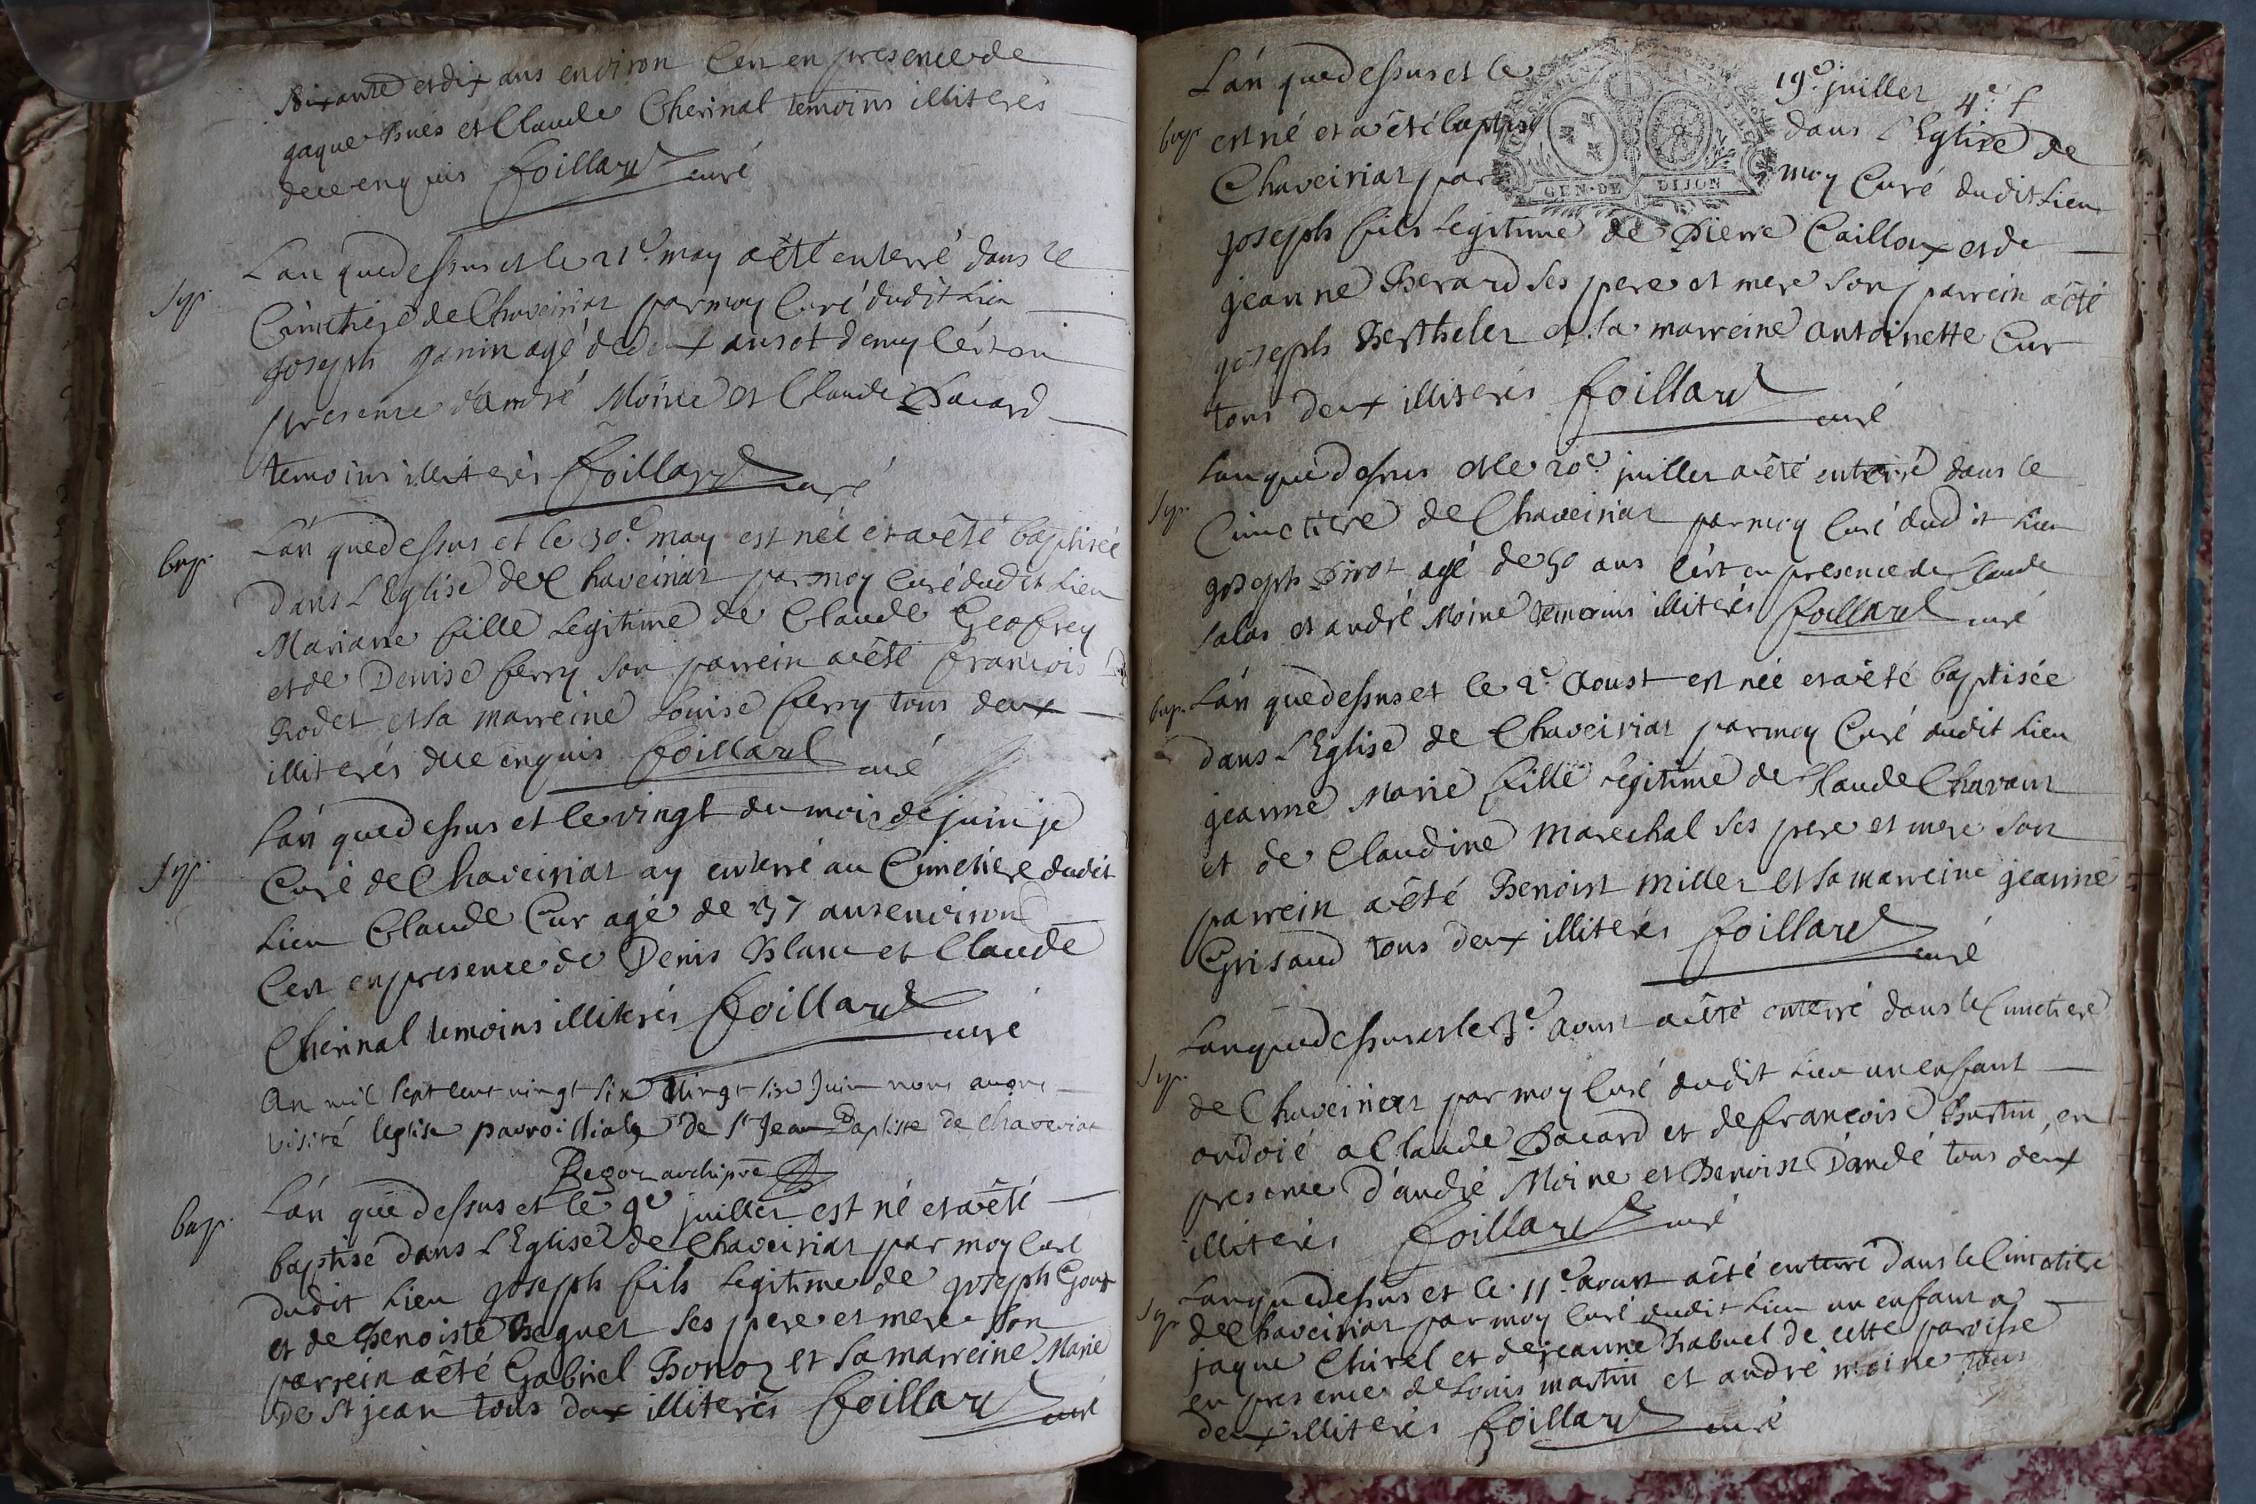 soixante et dix ans environ Cen en presence de
jaque Bués et Claude Cherinal temoins illiterés
de ce enquis foillard curé
sep.
L'an que dessus et le 21e. may a êté enterré dans le
Cimetiere de Chaveiriat par moy Curé dudit Lieu
joseph janin agé de deux ans et demy C'ért en
presence d'andré Moine et Claude Bacard
temoins illiterés foillard curé
bap.
L'an que dessus et le 30e. may est née et a êté baptisée
dans L'Eglise de Chaveiriat par moy Curé dudit Lieu
Mariane fille Legitime de Claude Geofrey
et de Denise ferry son parrein a êté francois
Rodet et sa marreine Louise ferry tous deux
illiterés de ce enquis foillard curé
sep.
L'an que dessus et le vingt du mois de juin je
Curé de Chaveiriat ay enterré au Cimetiere dudit
Lieu Claude Cur agé de 37 ans environ
Cen en presence de Denis Blanc et Claude
Cherinal temoins illiterés foillard curé
An mil sept cent vingt six Vingt six Juin nous avons
visité leglise parroissiale de St Jean Baptiste de Chaveriat
Begoz archiprê
bap.
L'an que dessus et le 9e juillet est né et a êté
baptisé dans L'Eglise de Chaveiriat par moy Curé
dudit Lieu joseph fils Legitime de joseph Goux
et de Benoiste Baguet ses pere et mere son
parrein a êté Gabriel Bonoz et sa marreine Marie
De St jean tous deux illiterés foillard curé
L'an que dessus et le 19e. juillet 4e. f
bap.
est né et a êté baptisé dans L'Eglise de
Chaveiriat par moy Curé dudit Lieu
GEN. DE DIJON
joseph fils Legitime de Pierre Cailloux et de
jeanne Berard ses pere et mere son parrein a êté
joseph Berthelet et sa marreine antoinette Cur
tous deux illiterés foillard curé
sep.
L'an que dessus et le 20e. juillet a êté enterré dans le
Cimetiere de Chaveiriat par moy Curé dudit Lieu
joseph Pirot agé de 50 ans C'ért en presence de Claude
Salas et andré Moine temoins illiterés foillard curé
bap.
L'an que dessus et le 2e. Aoust est née et a êté baptisée
dans L'Eglise de Chaveiriat par moy Curé dudit Lieu
jeanne Marie fille legitime de Claude Chavant
et de Claudine Marechal ses pere et mere son
parrein a êté Benoist Millet et sa marreine jeanne
Grisaud tous deux illiterés foillard curé
sep.
L'an que dessus et le 3e. aoust a êté enterré dans le Cimetiere
de Chaveiriat par moy Curé dudit Lieu un enfant
ondoié a Claude Bacard et de francoise Burtin, en
presence d'andré Moine et Benoist Dandé tous deux
illiterés foillard curé
sep.
L'an que dessus et le 11e. aoust a êté enterré dans le Cimetiere
de Chaveiriat par moy Curé dudit Lieu un enfant a
jaque Chirel et de jeanne Chabuel de cette paroisse
en presence de Louis martin et andré moine tous
deux illiterés foillard curé